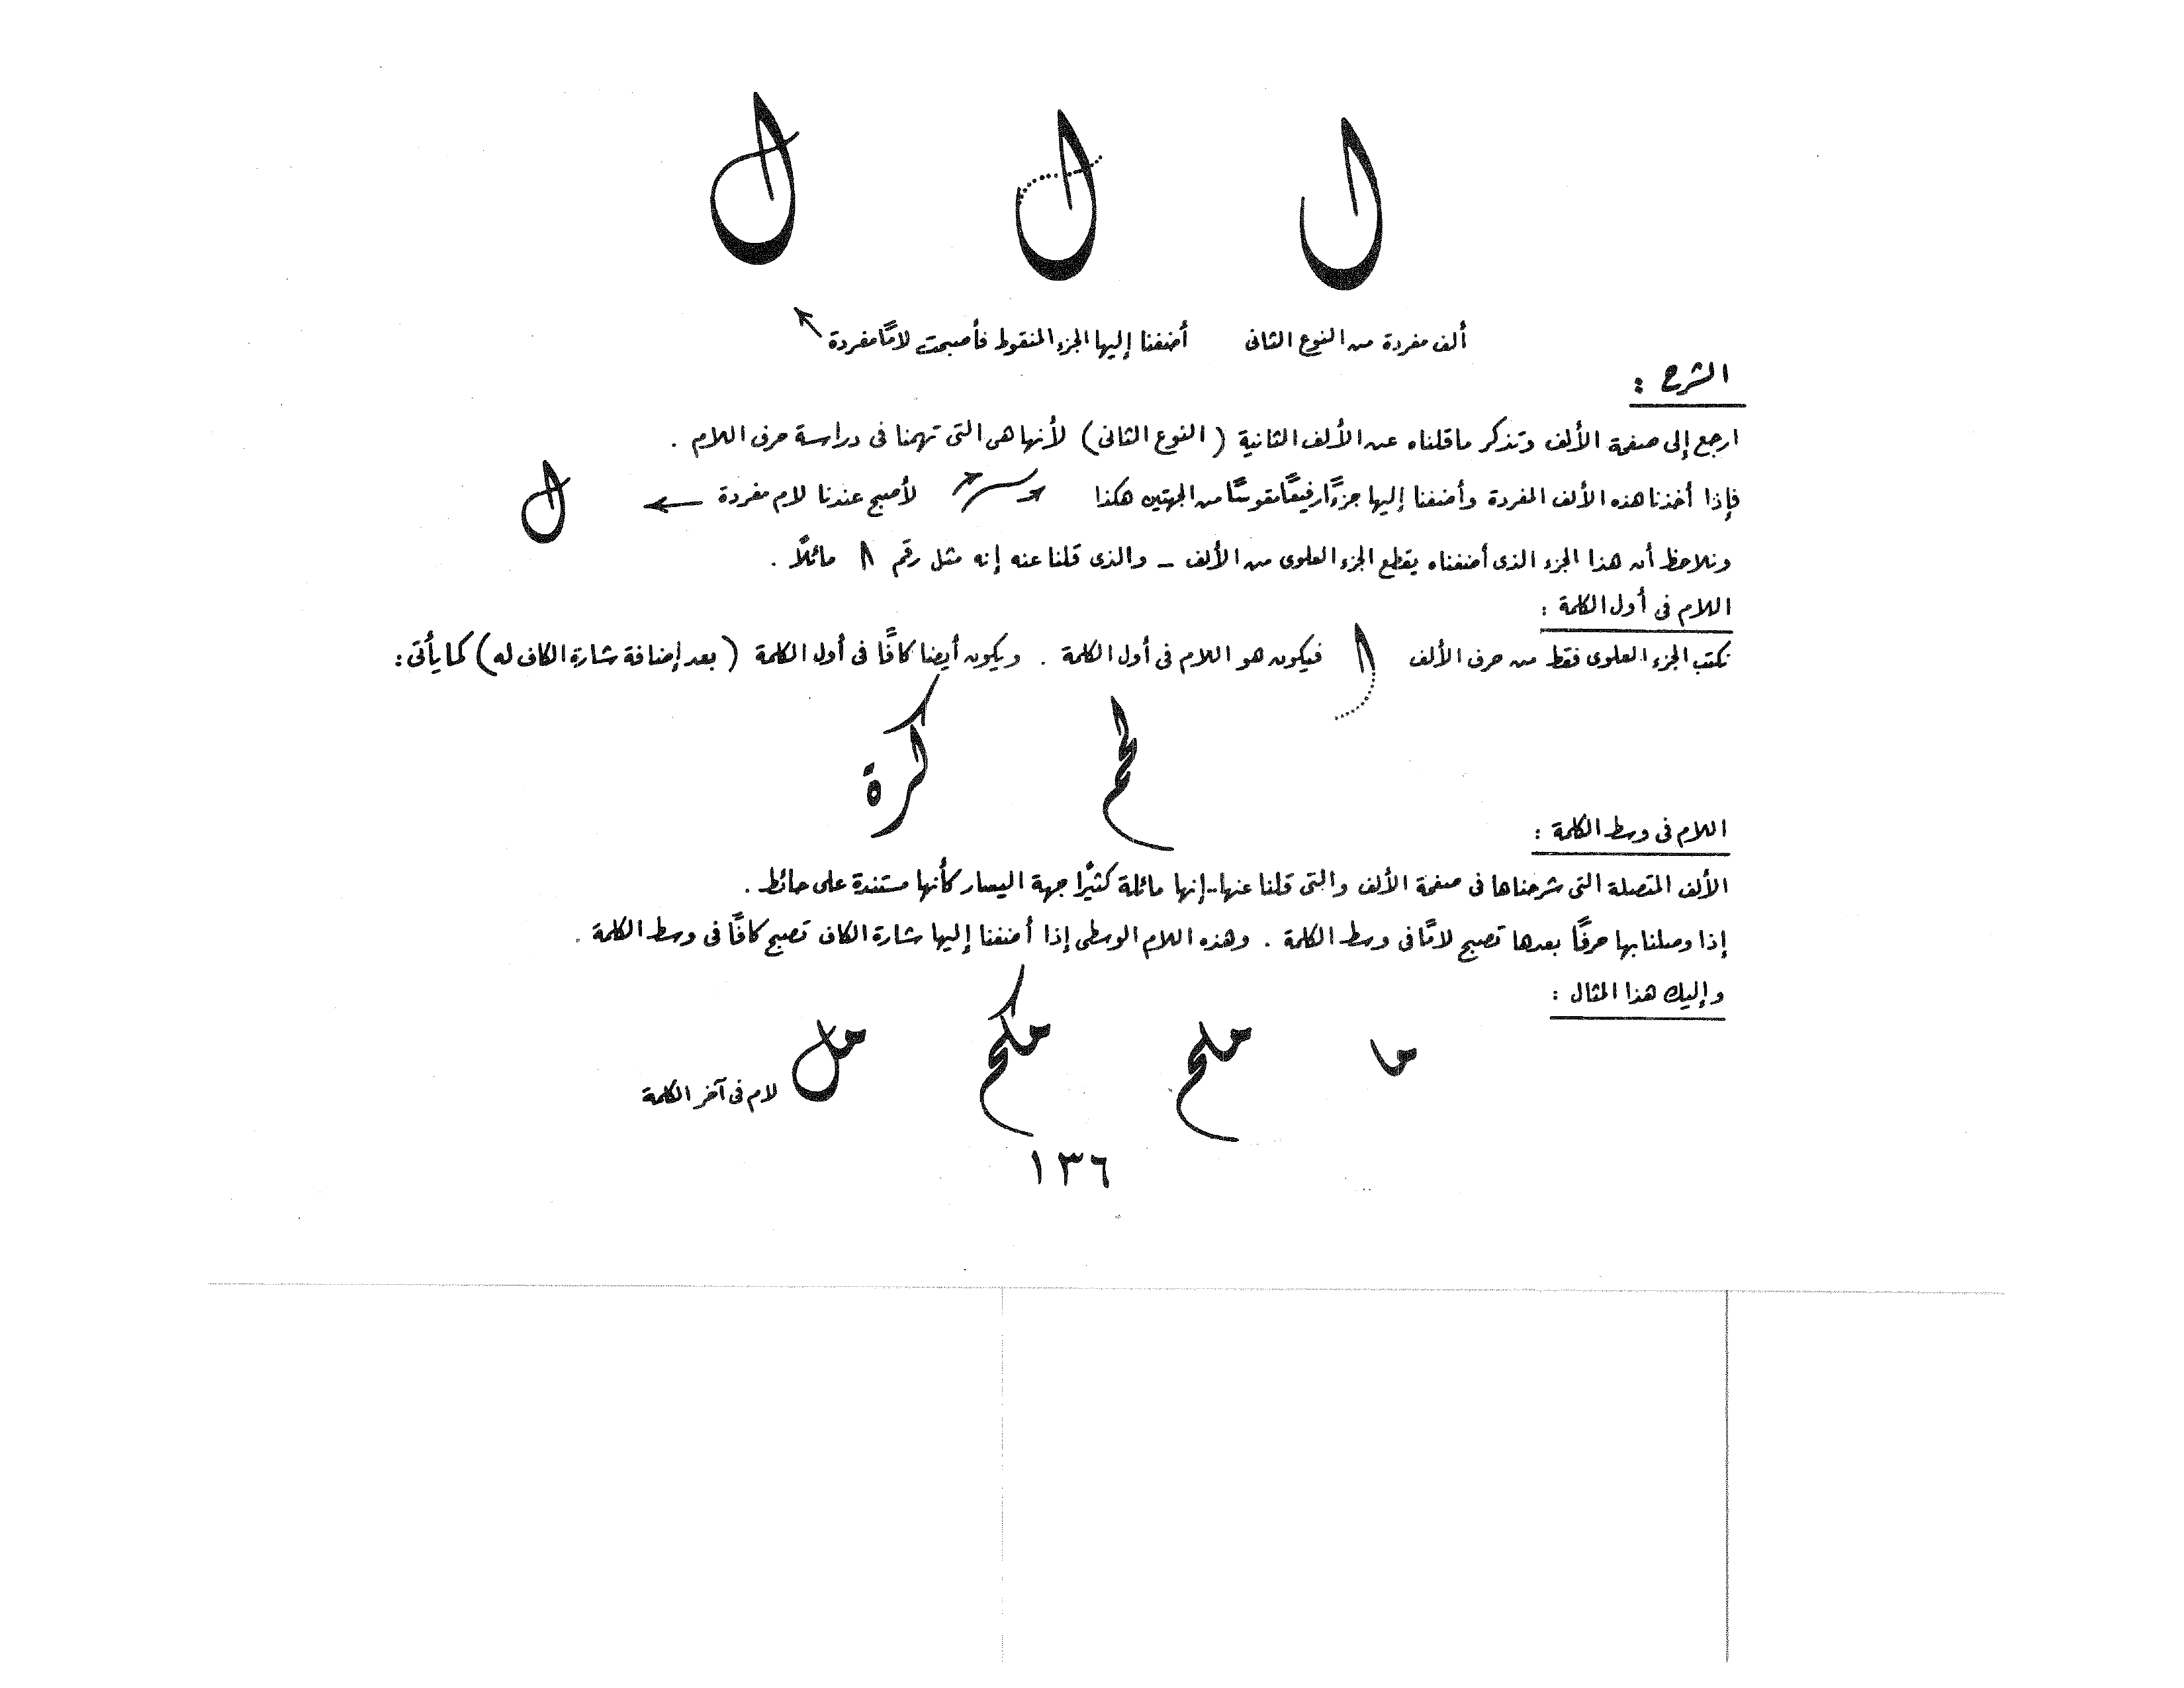 ألف مفردة من النوع الثانى أضفنا إليها الجزء المنقوط فأصبحت لامًا مفردة
الشرح :
ارجع إلى صفحة الألف وتذكر ماقلناه عن الألف الثانية ( النوع الثانى ) لأنها هى التى تهمنا فى دراسة حرف اللام .
فإذا أخذنا هذه الألف المفردة وأضفنا إليها جزءًا رفيعًا مقوسًا من الجهتين هكذا لأصبح عندنا لام مفردة
ونلاحظ أن هذا الجزء الذى أضفناه يقطع الجزء العلوى من الألف - والذى قلنا عنه إنه مثل رقم ٨ مائلًا .
اللام فى أول الكلمة :
نكتب الجزء العلوى فقط من حرف الألف فيكون هو اللام فى أول الكلمة . ويكون أيضا كافًا فى أول الكلمة ( بعد إضافة شارة الكاف له ) كما يأتى :
لحم كرة
اللام فى وسط الكلمة :
الألف المتصلة التى شرحناها فى صفحة الألف والتى قلنا عنها .. إنها مائلة كثيرًا جهة اليسار كأنها مستندة على حائط .
إذا وصلنا بها حرفًا بعدها تصبح لامًا فى وسط الكلمة . وهذه اللام الوسطى إذا أضفنا إليها شارة الكاف تصبح كافًا فى وسط الكلمة .
وإليك هذا المثال :
ما ملحم مكحم مل لام فى آخر الكلمة
١٣٦